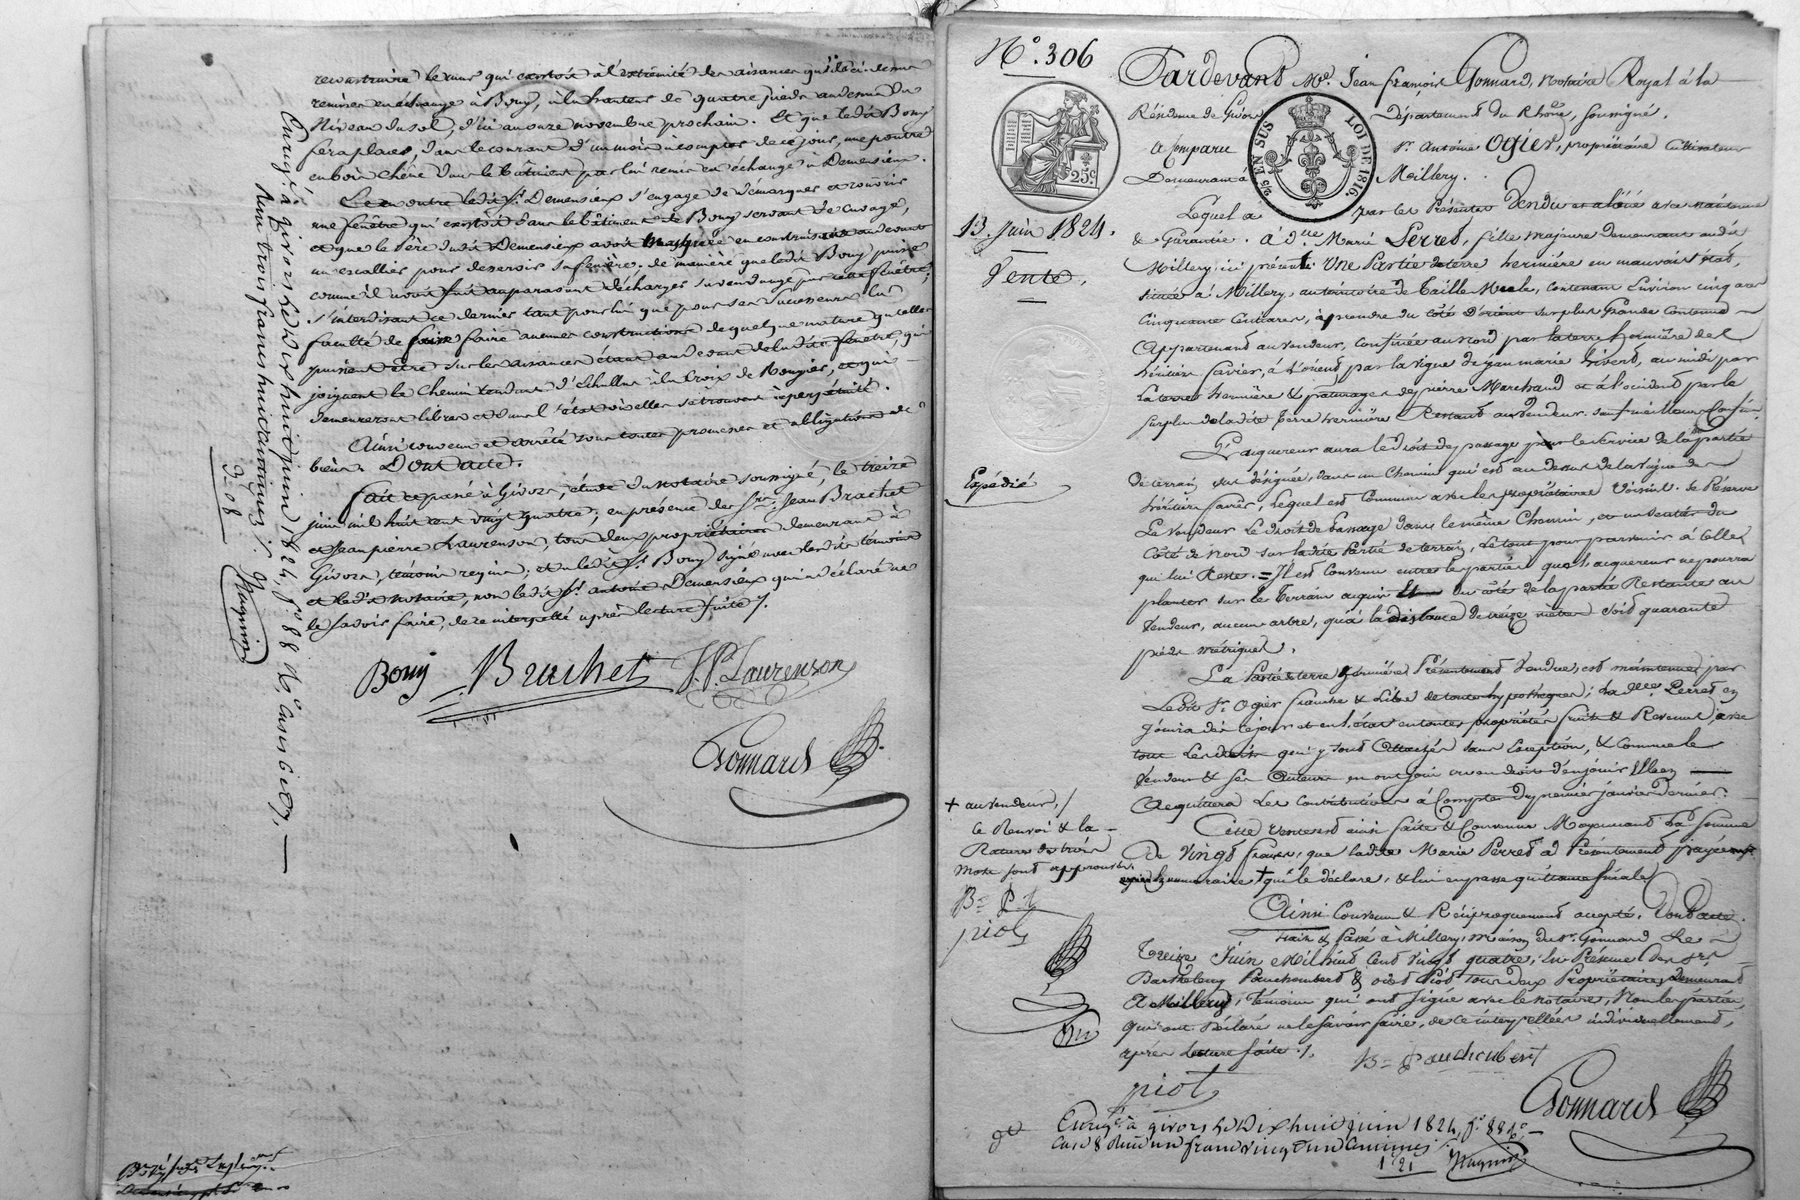 reconstruire le mur qui existoit à l'extrémité des aisances qu'il a ci-dessus
remises en échange à Bouy, à la hauteur de quatre pieds au dessus du
Niveau du sol, d'ici au onze novembre prochain. Et que ledit Bouy
fera placer, dans le courant d'un mois à compter de ce jour, une poutre
en bois chêne dans le bâtiment par lui remis en échange à Demensieux.
En outre ledit Sr. Demensieux s'engage de démasquer et rouvrir
une fenêtre qui existoit dans le bâtiment de Bouy servant de cuvage,
et que le père dudit Demensieux avoit masquée en construisant au devant
un escallier pour desservir sa fenière. de manière que ledit Bouy puisse
comme il avoit fait auparavant décharger sa vendange par cette fenêtre;
s'interdisant ce dernier tant pour lui que pour ses successeurs la
faculté de faire faire aucunes constructions de quelque nature qu'elles
puissent être sur les aisances étant au devant de ladite fenêtre, qui
joignent le chemin tendant d'Echallas à la Croix de Rongier, et qui
demeureront libres et dans l'état où elles se trouvent à perpétuité.
Ainsi convenu et arrêté sous toutes promesses et obligations de
biens. Dont acte.
fait et passé à Givors, étude du notaire soussigné, le treize
juin mil huit cent vingt quatre; en présence des Srs. Jean Brachet
et Jean pierre Laurenson, tous deux propriétaires demeurant à
Givors, témoins requis; et a ledit Sr. Bouy signé avec lesdits témoins
et ledit notaire, non ledit Sr. antoine Demensieux qui a déclaré ne
le savoir faire, de ce interpellé après lecture faite /.
Bouy Brachet J. P. Laurenson
Gonnard
Enreg.é à givors le dix huit juin 1824, f.o 88 R.o cases 6 et 7,
Reçu trois francs huit centimes /. Magnin
3. 08
N.o 306
Pardevant Me. Jean françois Gonnard, Notaire Royal à la
Résidence de Givors Département du Rhône, soussigné.
A Comparu Sr. Antoine Ogier, propriétaire Cultivateur
Demeurant à Millery.
25 c
2/5 EN SUS LOI DE 1816
13. Juin 1824.
Vente.
Lequel a par les Présentes Vendu et aliéné avec maintenue
& Garantie. à d.lle Marie Perret, fille majeure demeurant audit
Millery, ici présente Une Partie de terre hermière en mauvais état,
située à Millery, au territoire de Taille Mule, contenant Environ cinq ares
Cinquante Centiares, à prendre du côté d'orient sur plus Grande Contenue
Appartenant au vendeur, Confinée au Nord par la terre hermière des
héritiers favier, à l'orient par la vigne de jean marie Girerd, au midi par
La terre hermière & paturages de pierre Marchand et à l'occident par le
surplus de ladite terre hermière Restant au Vendeur. sauf meilleurs Confins.
L'acquereur aura le Droit de passage pour le Service de la partie
De terrain sus désignée, dans un Chemin qui est au dessus de la vigne des
héritiers favier, lequel est Commun avec les propriétaires Voisins. se Réserve
Le Vendeur le droit de Passage dans le même Chemin, et un sentier du
Côté de Nord sur ladite Partie de terrain, Le tout pour parvenir à celle
qui lui Reste. = Il est Convenu entre les parties que l'acquereur ne pourra
planter sur le terrain acquis du côté de la partie Restante au
Vendeur, aucun arbre, qu'à la distance de treize mètres soit quarante
pieds métriques.
Expédié
La Partie de terre hermière Présentement Vendue, est maintenue par
Ledit Sr. Ogier franche & Libre de toute hypothèque; La d.lle Perret en
Jouira dès ce jour et en l'état en toutes propriétés fruits & Revenus, avec
tous Les droits qui y sont Attachés sans Exception, & Comme le
Vendeur & ses Auteurs en ont joui ou eu droit d'en jouir Elle en
Acquittera Les Contributions à Compter du premier janvier dernier.
Cette Vente est ainsi faite & Convenue Moyennant La Somme
De Vingt francs, que ladite Marie Perret a Présentement payée
en numéraire + qui le déclare, & lui en passe quittance finale
+ au vendeur /
Ce Renvoi & la
Rature de trois
mots sont approuvés
B= P.t
piot
Ainsi Convenu & Réciproquement accepté. Dont acte.
Fait & Passé à Millery, maison du Sr. Gonnard Le
Treize Juin Mil huit Cent Vingt quatre; En Présence des Srs.
Barthelemy Pauchombert & Piot tous deux Propriétaires Demeurant
A Millery, Témoins qui ont signé avec le notaire, Non les parties
Qui ont Déclaré ne le savoir faire, de ce interpellées individuellement,
après Lecture faite /.
B= Pauchombert
piot
Gonnard
Enreg.é à givors le Dix huit juin 1824, f.o 88 R.o
Case 8 Reçu un franc vingt un Centimes
1 21 Magnin